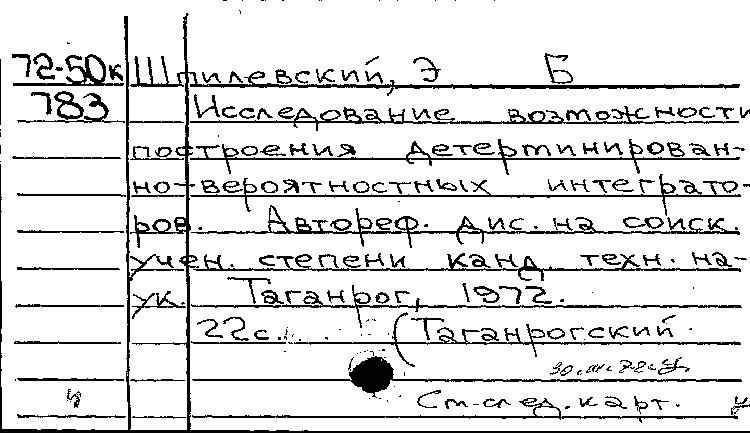 72-50к Шпилевский, Э Б
783 Исследование возможности
построения детерминирован-
но-вероятностных интеграто-
ров. Автореф. дис. на соиск.
учен. степени канд. техн. на-
ук. Таганрог, 1972.
22с. (Таганрогский
См. след. карт.